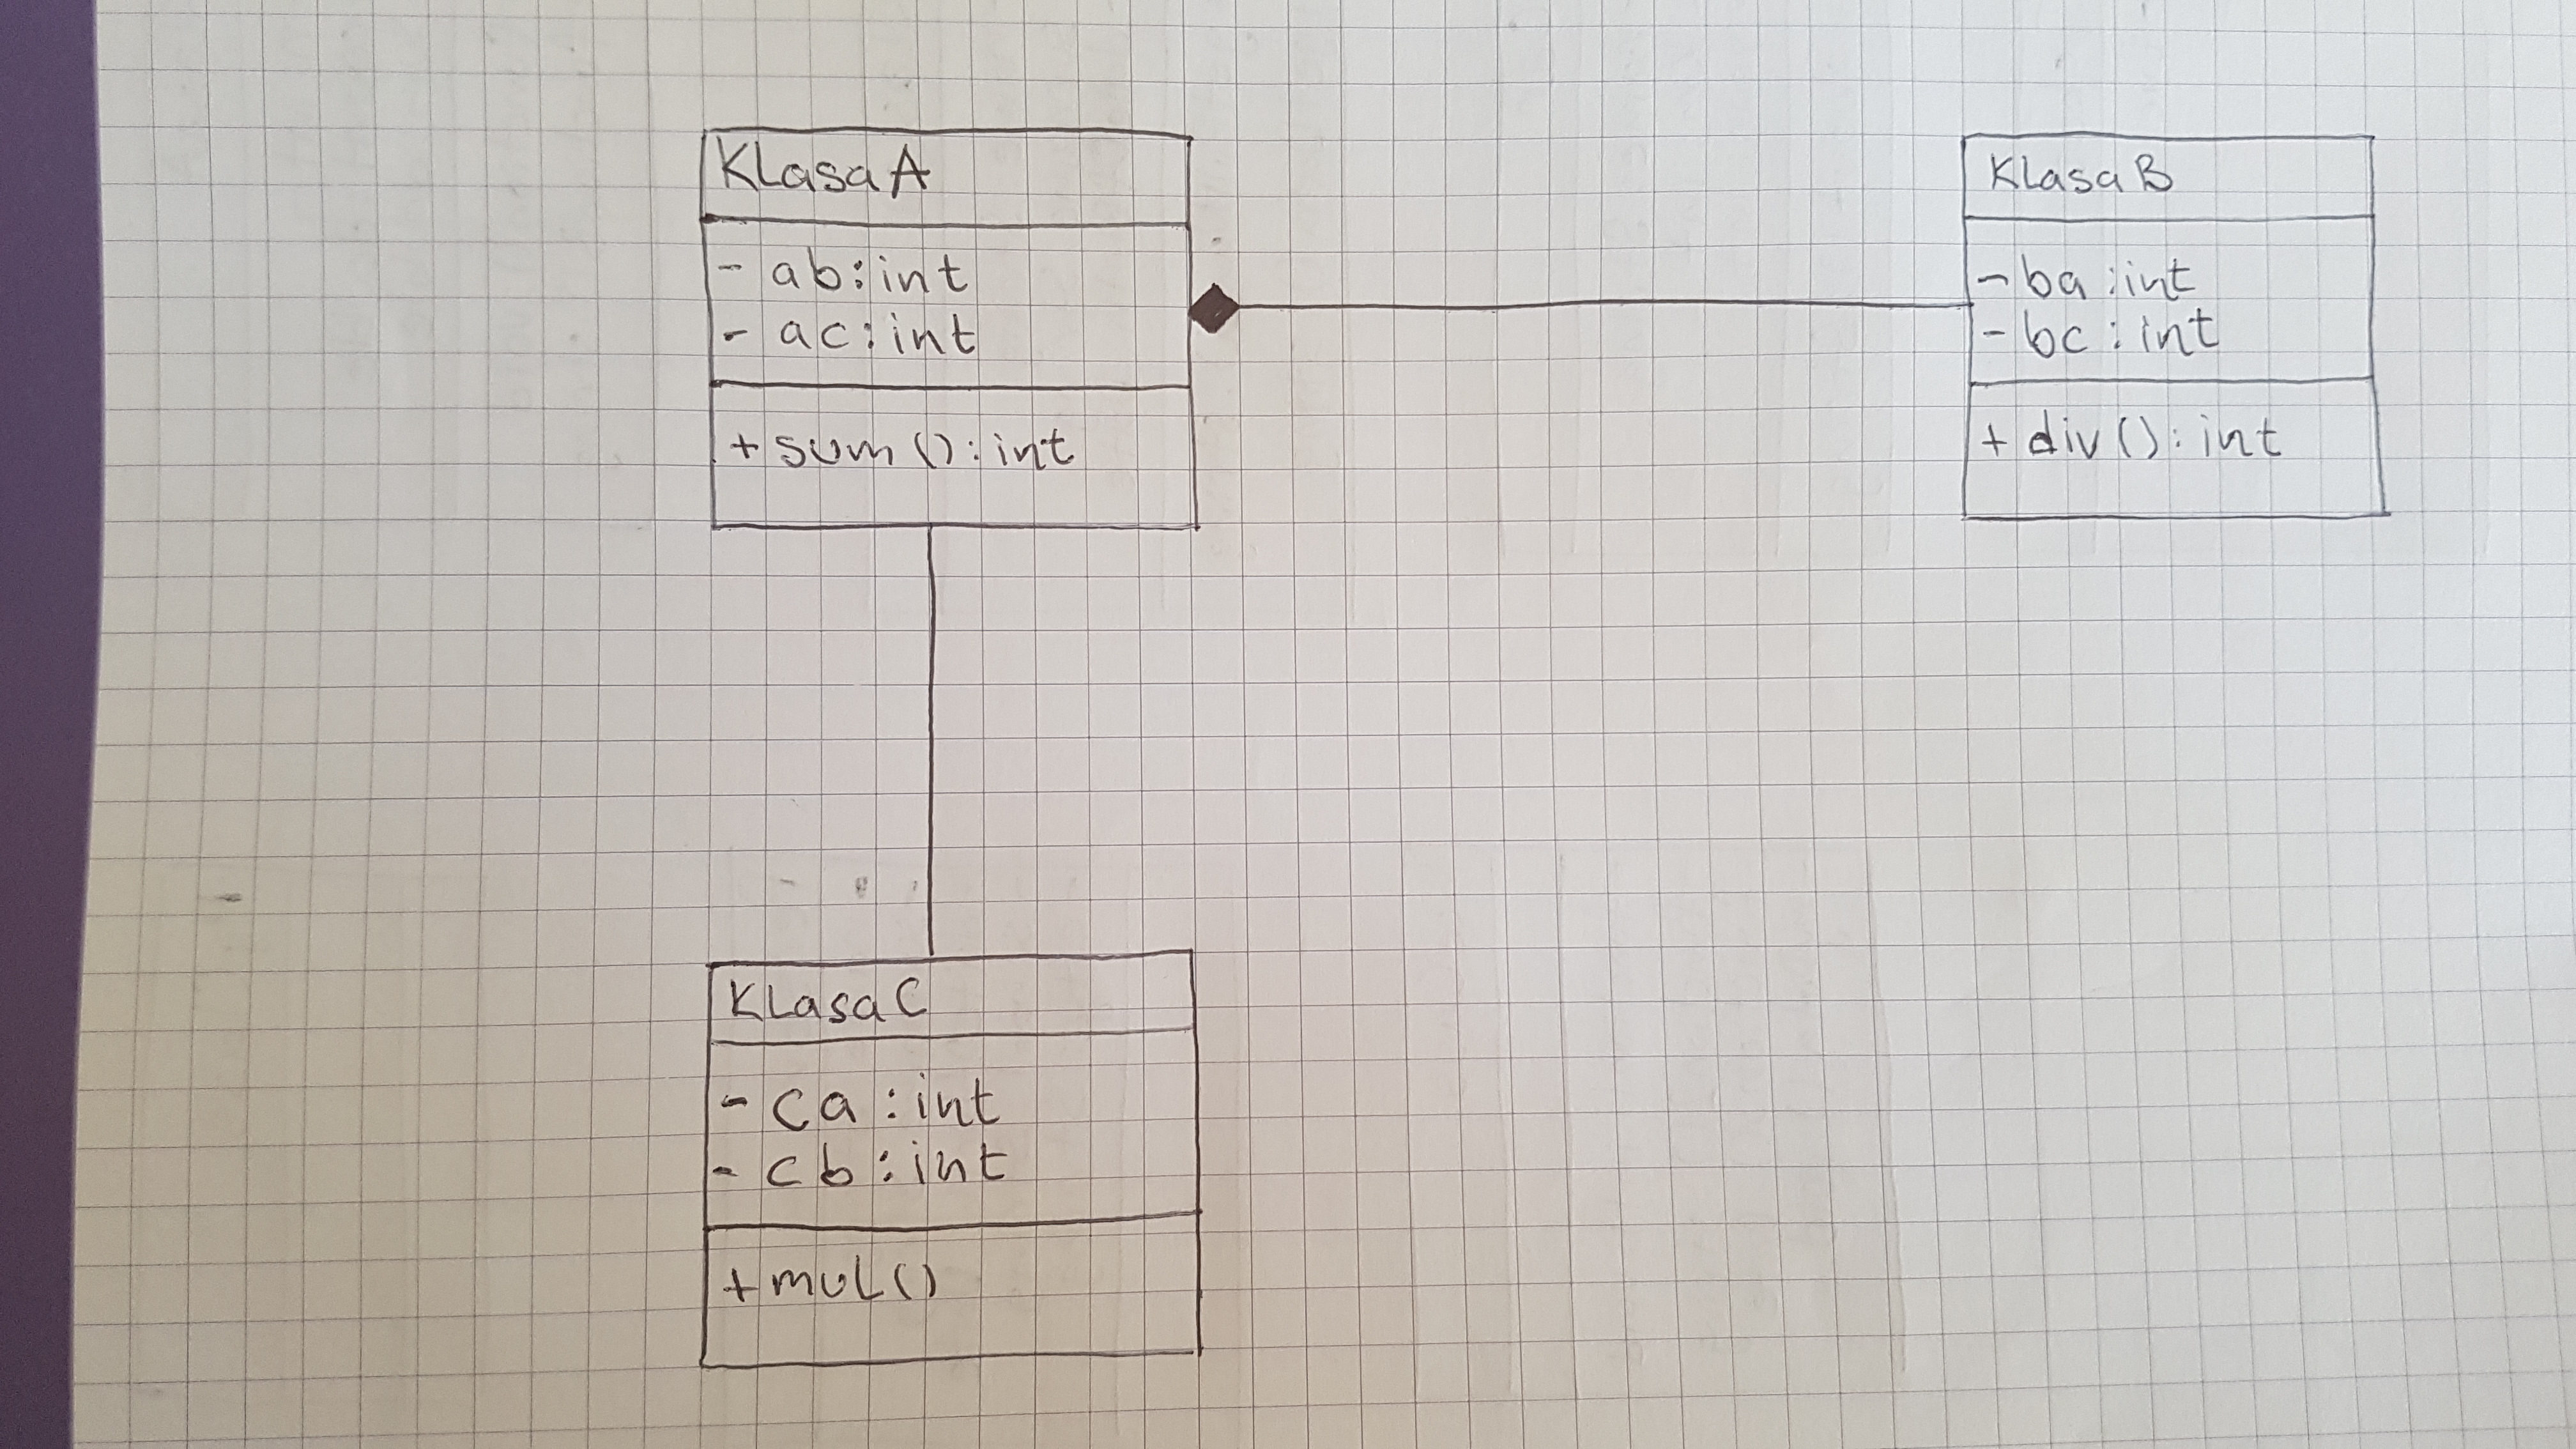 KlasaA
- ab: int
- ac: int
+ sum(): int
KlasaB
- ba: int
- bc: int
+ div(): int
KlasaC
- ca: int
- cb: int
+ mul()